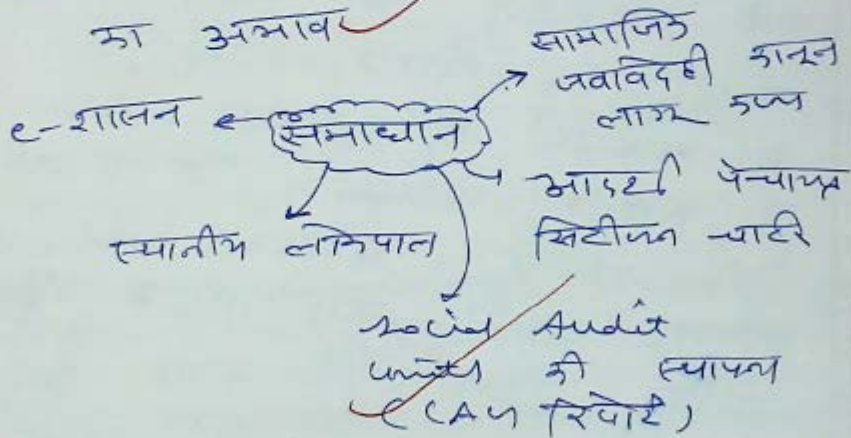 का अभाव
e-शासन
समाधान
सामाजिक
जवाबदेही कानून
लागू करना
आदर्श पंचायत
सिटीजन चार्टर
स्थानीय लोकपाल
Social Audit
units की स्थापना
(CAG रिपोर्ट)